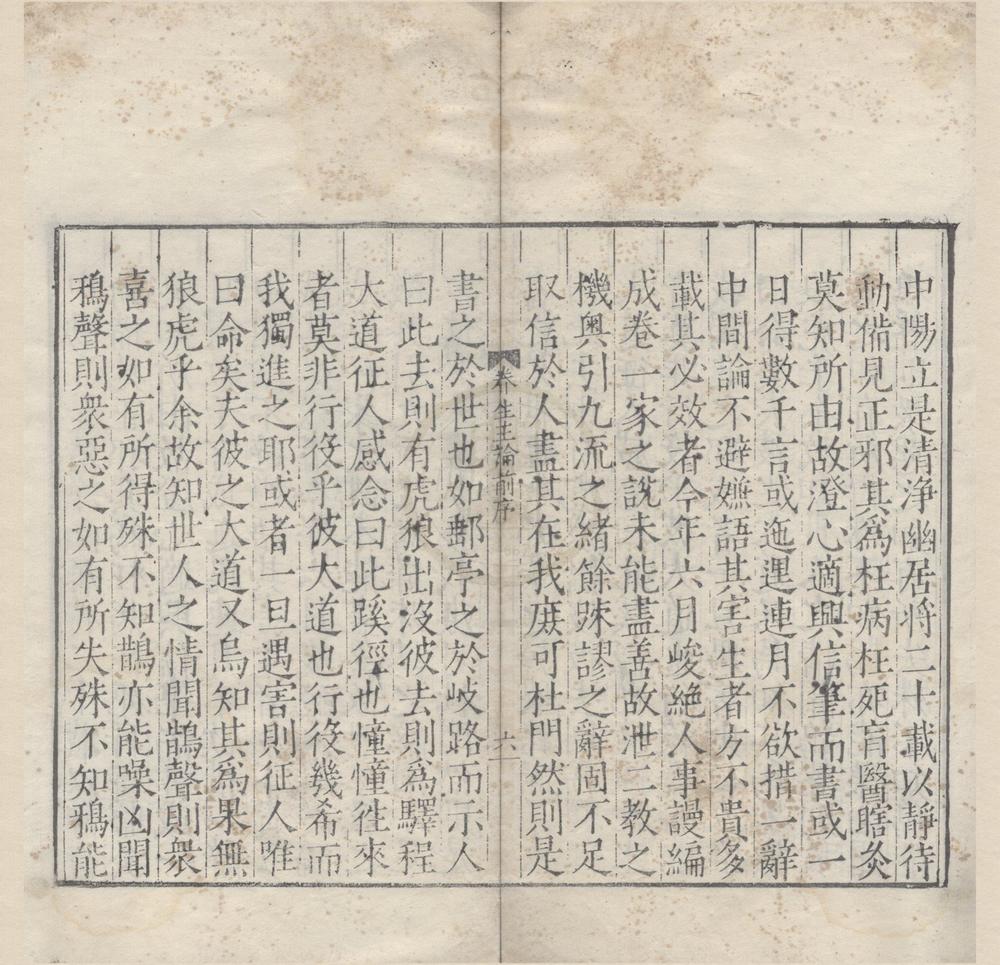 中陽立是清浄幽居将二十載以靜待
動備見正邪其為枉病枉死盲醫瞎灸
莫知所由故澄心適興信筆而書或一
日得數千言或迤逕連月不欲措一辭
中間論不避嫌語其害生者方不貴多
載其必效者今年六月峻絕人事謾編
成卷一家之說未能盡善故泄二教之
機奧引九流之緒餘踈謬之辭固不足
取信於人盡其在我庶可杜門然則是
卷 生主論前序 六
書之於世也如郵亭之於岐路而示人
曰此去則有虎狼出沒彼去則為驛程
大道征人感念曰此蹊徑也憧憧徃來
者莫非行役乎彼大道也行役幾希而
我獨進之耶或者一日遇害則征人唯
曰命矣夫彼之大道又烏知其為果無
狼虎乎余故知世人之情聞鵲聲則衆
喜之如有所得殊不知鵲亦能噪凶聞
鴉聲則衆惡之如有所失殊不知鴉能